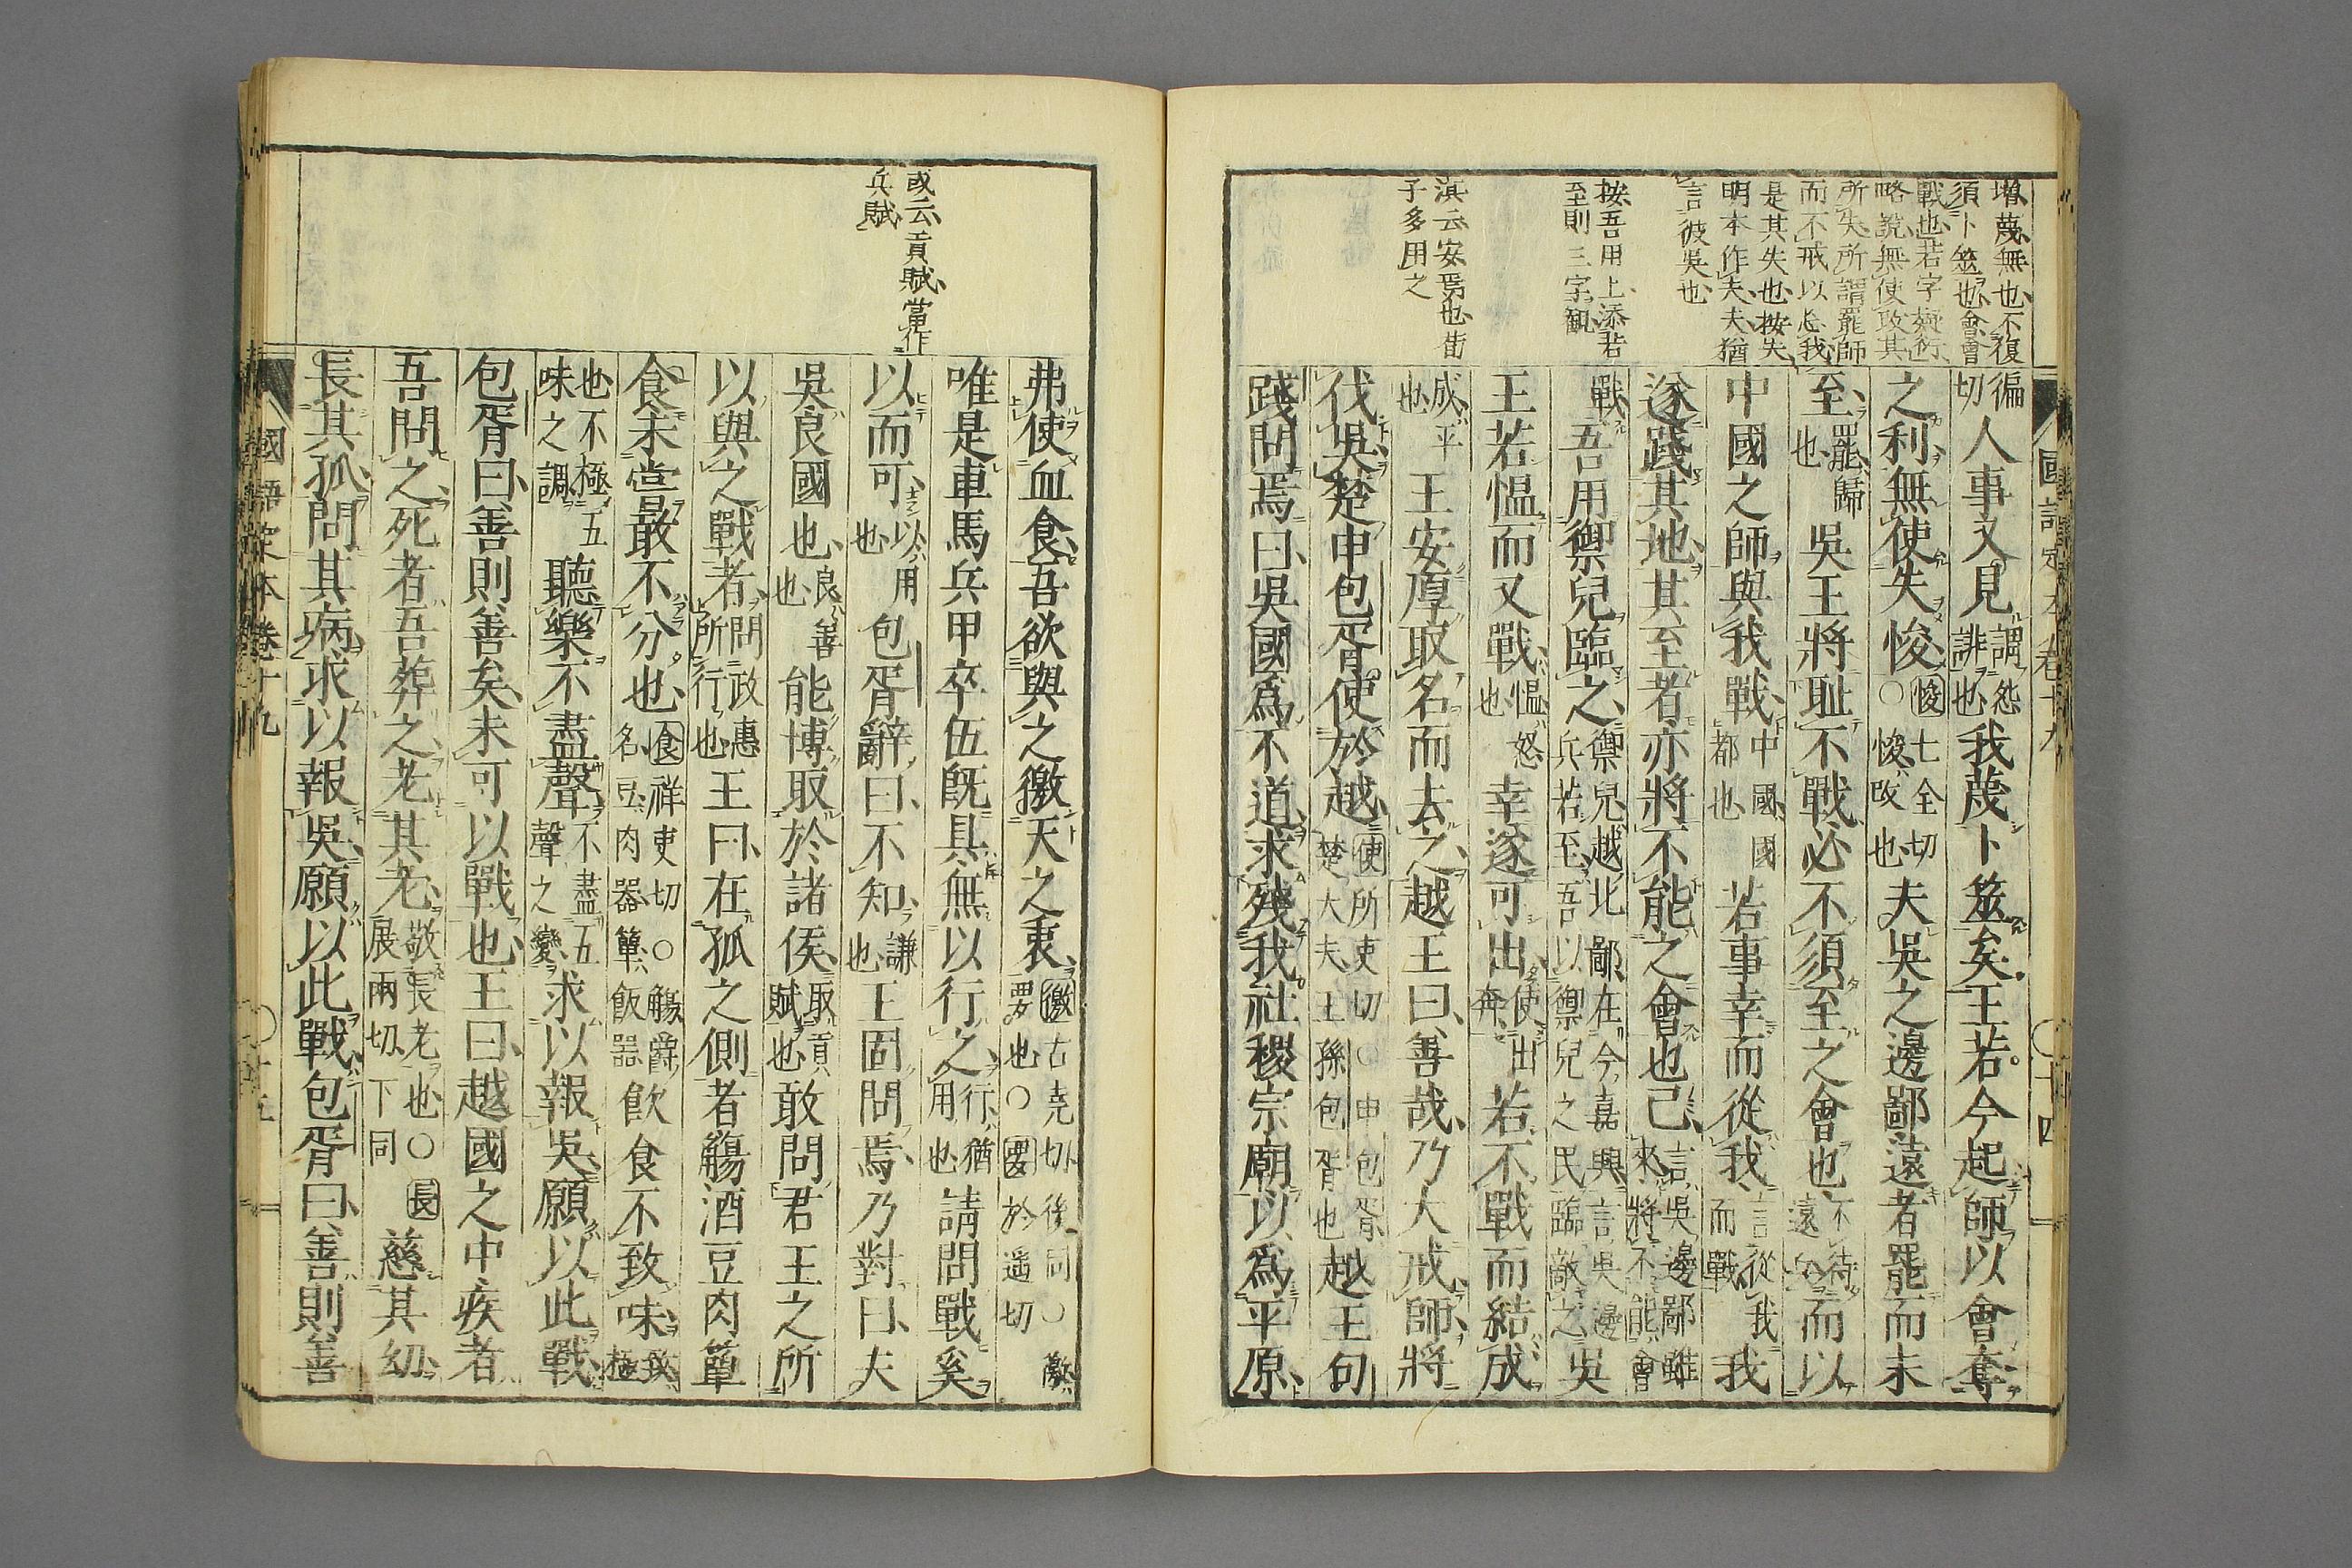 增蔑無也不復
須卜筮也會會
戰也若字
略說無使攻其
所失所謂罷師
而不戒以忘我
是其失也按失
明本作夫夫猶
言彼吳也
按吾用上添若
至則三字觀
滇云安焉也
子多用之
國語定本卷十九 ○十四
徧切人事又見謂怨誹也我蔑卜筮矣王若今起師以會奪
之利無使失悛悛七全切○悛改也夫吳之邊鄙遠者罷而未
至罷歸也吳王將耻不戰必不須至之會也不待遠兵而以
中國之師與我戰中國國都也若事幸而從我言從我而戰我
遂踐其地其至者亦將不能之會也已言吳邊鄙雖來將不能會
戰吾用禦兒臨之禦兒越北鄙在今嘉興言吳邊兵若至吾以禦兒之民臨敵之吳
王若慍而又戰慍怒也幸遂可出使出奔若不戰而結成
成平也王安厚取名而去之越王曰善哉乃大戒師將
伐吳楚申包胥使於越使所吏切○申包胥楚大夫王孫包胥也越王句
踐問焉曰吳國爲不道求殘我社稷宗廟以爲平原
或云貢賦當作
兵賦
弗使血食吾欲與之徼天之衷徼古堯切後同○徼要也○要於遥切
唯是車馬兵甲卒伍旣具無以行之行猶用也請問戰奚
以而可以用也包胥辭曰不知謙也王固問焉乃對曰夫
吳良國也良善也能博取於諸侯取貢賦也敢問君王之所
以與之戰者問政惠所行也王曰在孤之側者觴酒豆肉簞
食未嘗敢不分也食祥吏切○觴爵名豆肉器簞飯器飲食不致味致極
也不極五味之調聽樂不盡聲不盡五聲之變求以報吳願以此戰
包胥曰善則善矣未可以戰也王曰越國之中疾者
吾問之死者吾葬之老其老敬長老也○長展兩切下同慈其幼
長其孤問其病求以報吳願以此戰包胥曰善則善
國語定本卷十九 ○十五